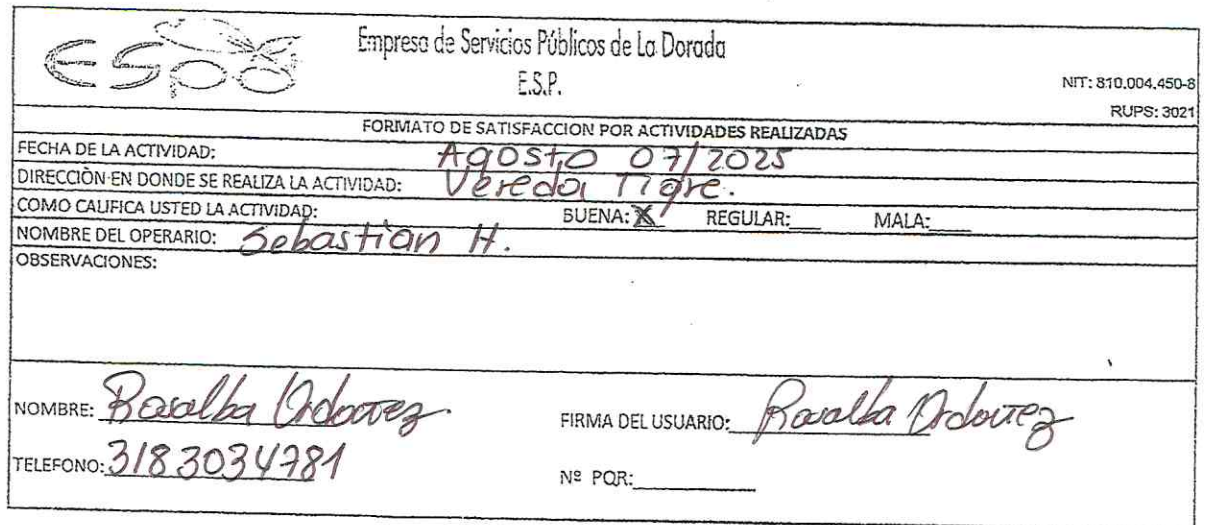 ESPO
Empresa de Servicios Públicos de La Dorada
E.S.P.
NIT: 810.004.450-8
RUPS: 3021
FORMATO DE SATISFACCION POR ACTIVIDADES REALIZADAS
FECHA DE LA ACTIVIDAD: Agosto 07/2025
DIRECCIÒN EN DONDE SE REALIZA LA ACTIVIDAD: Vereda Tigre.
COMO CALIFICA USTED LA ACTIVIDAD: BUENA: X REGULAR: MALA:
NOMBRE DEL OPERARIO: Sebastian H.
OBSERVACIONES:
NOMBRE: Rosalba FIRMA DEL USUARIO: Rosalba
TELEFONO: 3183034781 Nº PQR: